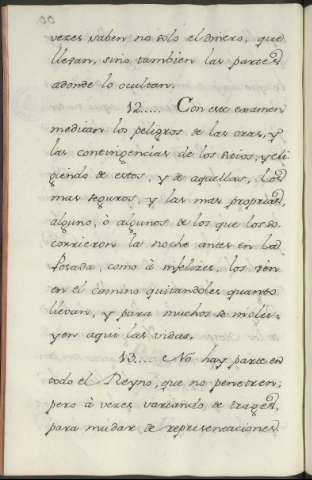 veces saben no solo el dinero, que
llevan, sino tambien las partes
adonde lo ocultan.
12..... Con este examen
meditan los peligros de las oras, y
las contingencias de los sitios, y eli
giendo de estos, y de aquellas, los
mas seguros, y las mas propias,
alguno, ò algunos de los que los so.
corrieron la noche antes en la
Posada, como à infelices, los
en el camino quitandoles quanto
llevan, y para muchos se
yen aqui las vidas.
13.... No hay parte en
todo el Reyno, que no penetren;
pero à veces variando de trages,
para mudar de representaciones